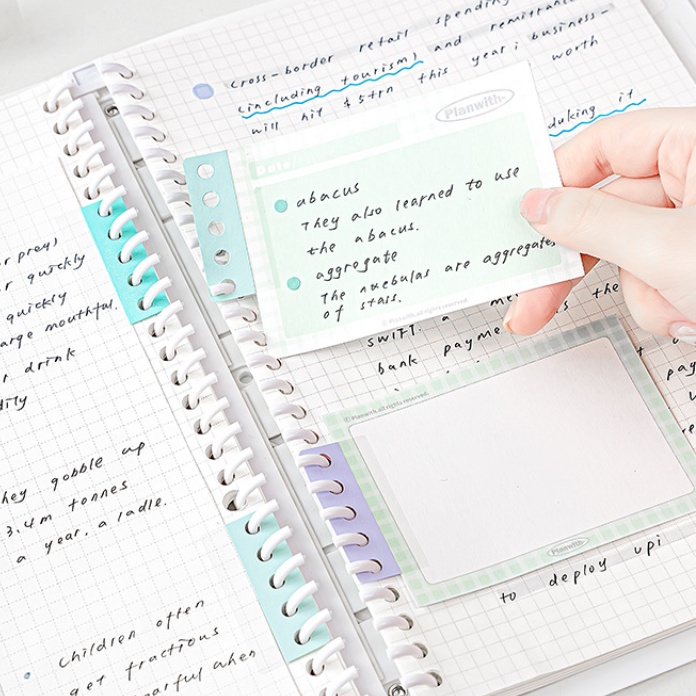 or prey)
or quickly
quickly
large mouthful.
r drink
dily
hey gobble up
3.4m tonnes
a year, a ladle.
Children often
get fractious
earful when
cross-border retail spending
(including tourism) and remittances
will hit $5trn this year; business-
worth
duking it
Planwith.
Date/
abacus
They also learned to use
the abacus.
aggregate
The nuebulas are aggregates
of stars.
all rights reserved.
SWIFT. a me the
bank payme pay
© Planwith. all rights reserved.
Planwith.
to deploy upi